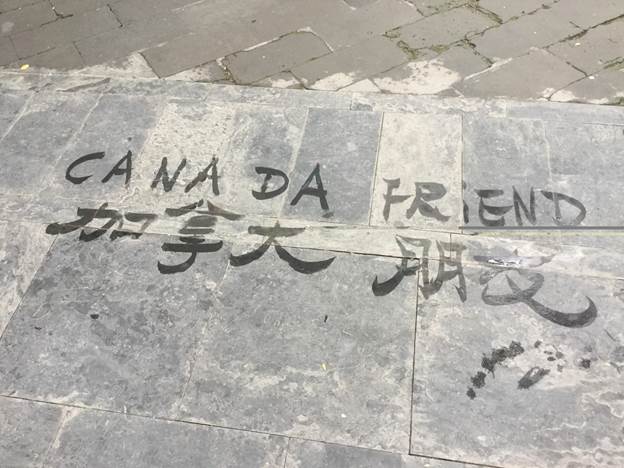 CANADA FRiEND
加拿大 朋友